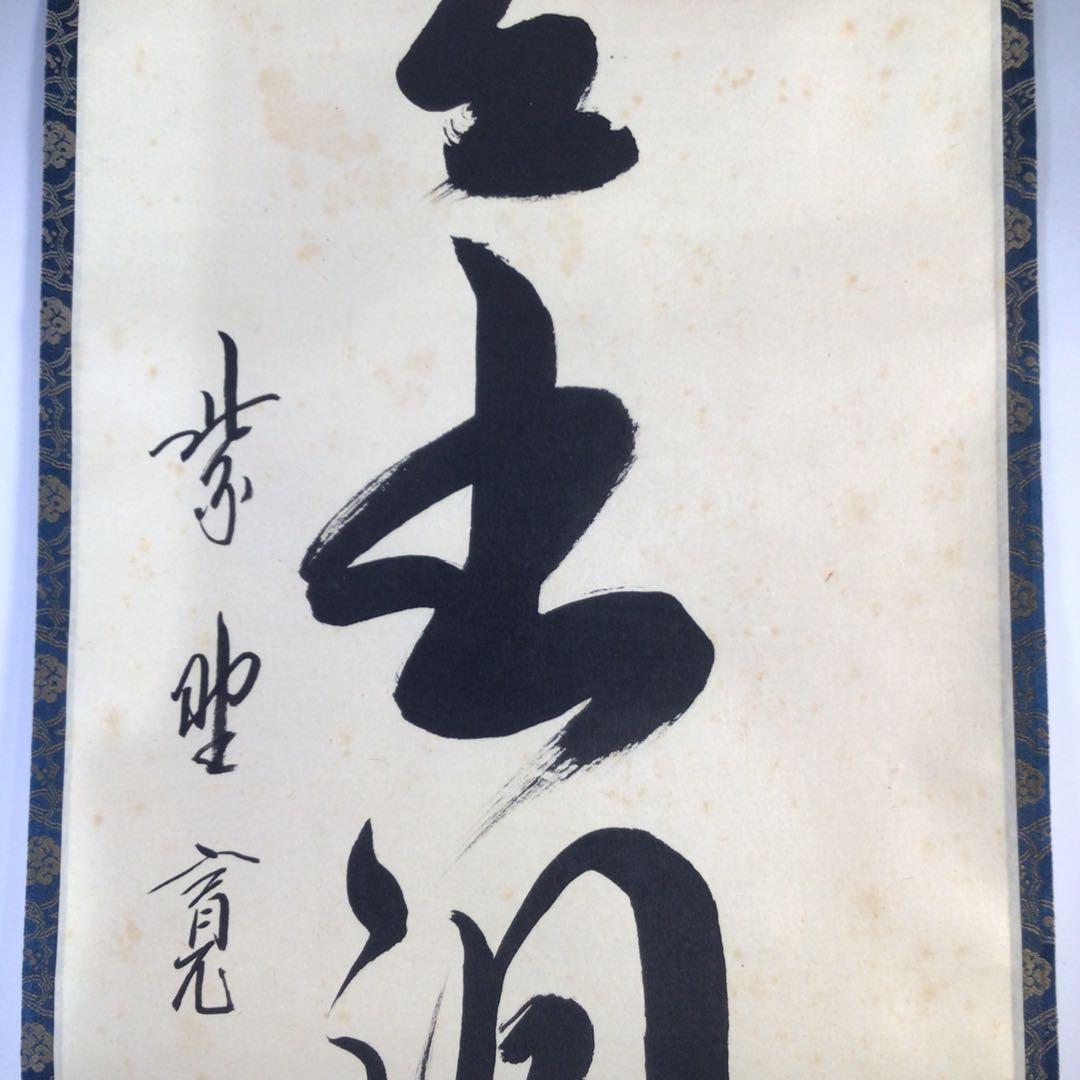 出洞
紫野寛